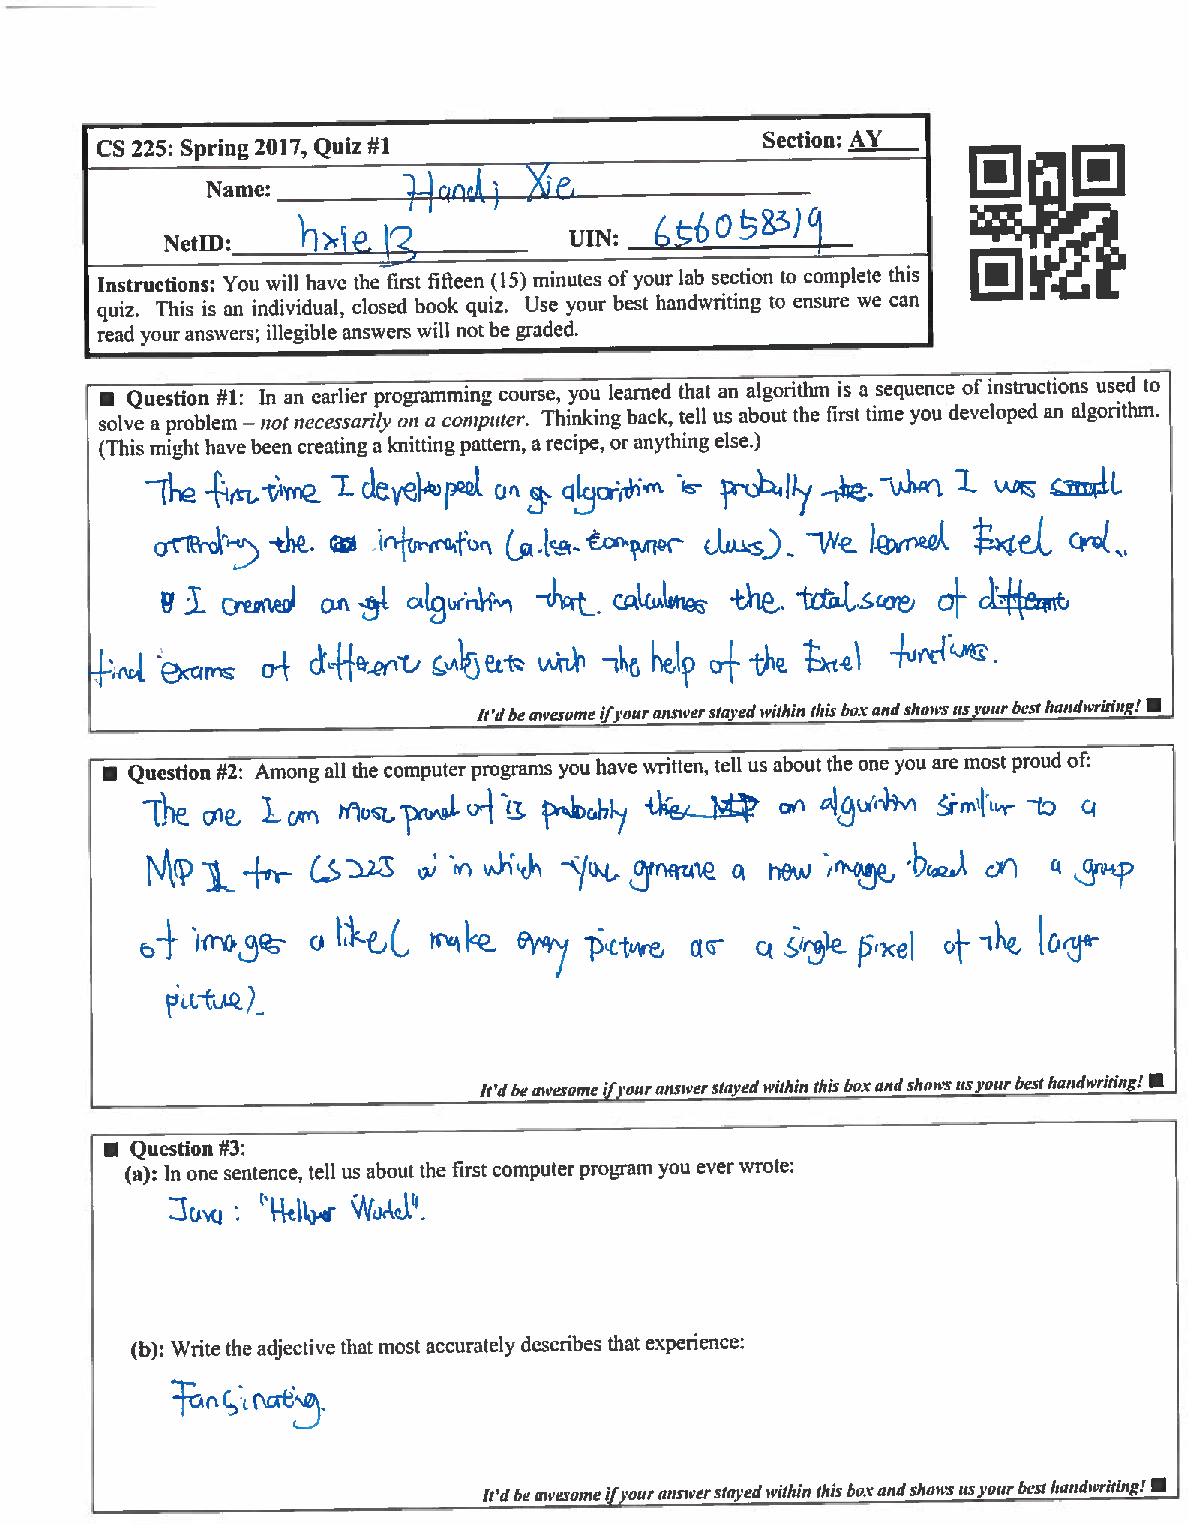 CS 225: Spring 2017, Quiz #1 Section: AY
Name: Handi Xie
NetID: hxie13 UIN: 656058319
Instructions: You will have the first fifteen (15) minutes of your lab section to complete this
quiz. This is an individual, closed book quiz. Use your best handwriting to ensure we can
read your answers; illegible answers will not be graded.
■ Question #1: In an earlier programming course, you learned that an algorithm is a sequence of instructions used to
solve a problem – not necessarily on a computer. Thinking back, tell us about the first time you developed an algorithm.
(This might have been creating a knitting pattern, a recipe, or anything else.)
The first time I developed an algorithm is probally when I was
attending the information (a.k.a. computer class). We learned Excel and
I created an algorithm that calculates the total score of
final exams of different subjects with the help of the Excel functions.
It'd be awesome if your answer stayed within this box and shows us your best handwriting! ■
■ Question #2: Among all the computer programs you have written, tell us about the one you are most proud of:
The one I am most proud of is probably an algorithm similar to a
MP 1 for CS225 in which you generate a new image based on a group
of images alike( make every picture as a single pixel of the larger
picture).
It'd be awesome if your answer stayed within this box and shows us your best handwriting! ■
■ Question #3:
(a): In one sentence, tell us about the first computer program you ever wrote:
Java: "Hello World".
(b): Write the adjective that most accurately describes that experience:
Fanscinating.
It'd be awesome if your answer stayed within this box and shows us your best handwriting! ■